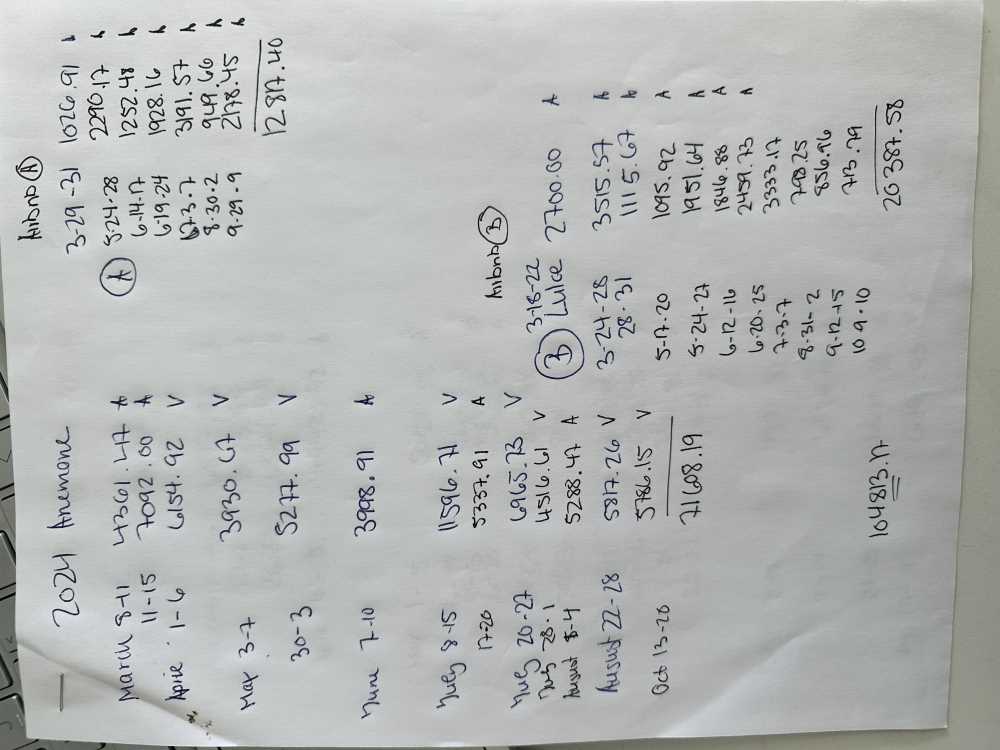 2024 Anemone
March 8-11 4361.47 A
11-15 7092.00 A
April 1-6 6154.92 V
May 3-7 3930.67 V
30-3 5277.99 V
June 7-10 3998.91 A
July 8-15 11596.71 V
17-20 5337.91 A
July 20-27 6965.73 V
July 28.1 4516.61 V
August 8-4 5288.47 A
August 22-28 5817.26 V
Oct 13-20 5786.15 V
71608.19
Airbnb A
A
3-29-31 1026.91 A
5-24-28 2290.17 A
6-14-17 1252.48 A
6-19-24 1928.16 A
7-3-7 3191.57 A
8-30-2 949.66 A
9-29-9 2178.45 A
12817.40
Airbnb B
B
3-18-22
Luice 2700.00 A
3-24-28 3515.57 A
28-31 1115.67 A
5-17-20 1095.92 A
5-24-27 1951.64 A
6-12-16 1846.88 A
6-20-25 2459.73 A
7-3-7 3333.17
8-31-2 798.25
9-12-15 856.96
10 9-10 713.79
20387.58
104813.17